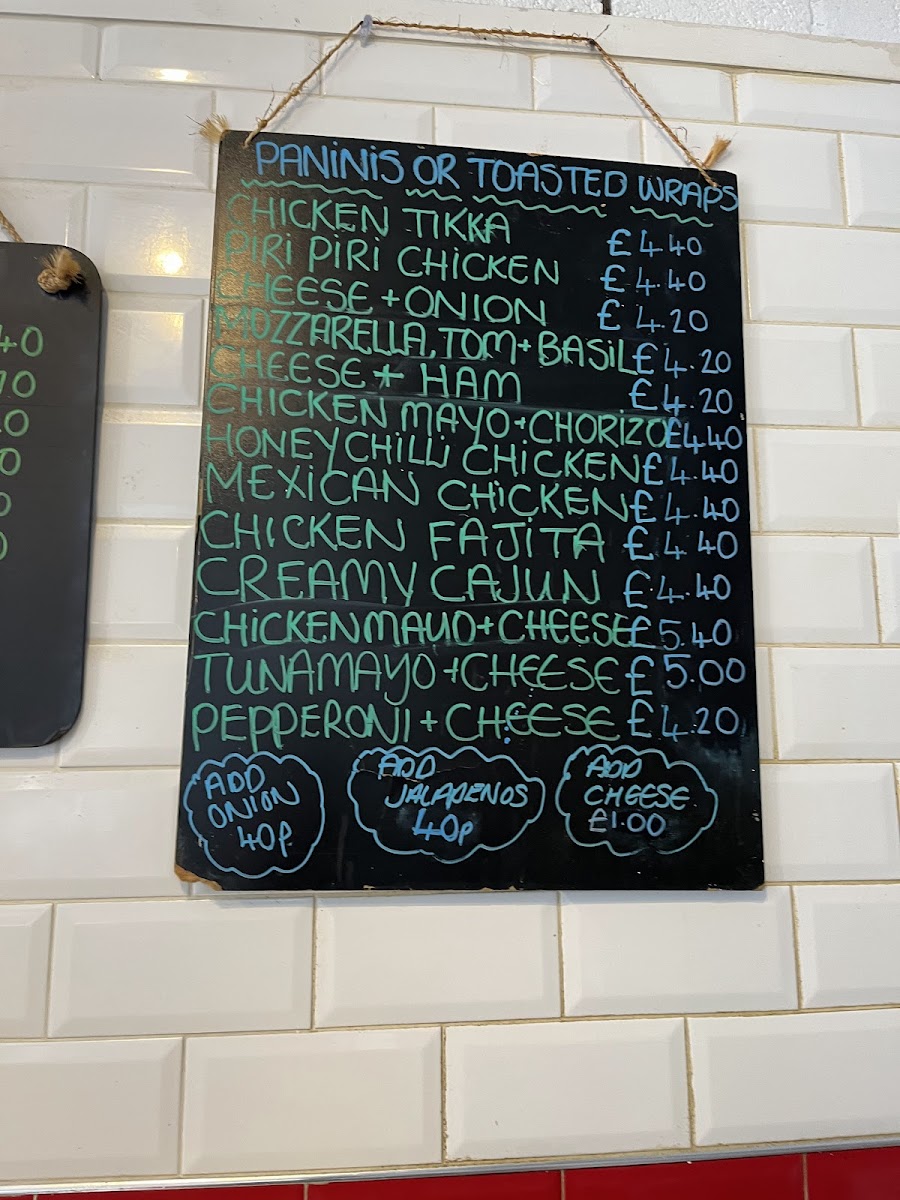 PANINIS OR TOASTED WRAPS
CHICKEN TIKKA £4.40
PIRI PIRI CHICKEN £4.40
CHEESE + ONION £4.20
MOZZARELLA, TOM + BASIL £4.20
CHEESE + HAM £4.20
CHICKEN MAYO + CHORIZO £4.40
HONEY CHILLI CHICKEN £4.40
MEXICAN CHICKEN £4.40
CHICKEN FAJITA £4.40
CREAMY CAJUN £4.40
CHICKEN MAYO + CHEESE £5.40
TUNA MAYO + CHEESE £5.00
PEPPERONI + CHEESE £4.20
ADD
ONION
40p
ADD
JALAPENOS
40p
ADD
CHEESE
£1.00